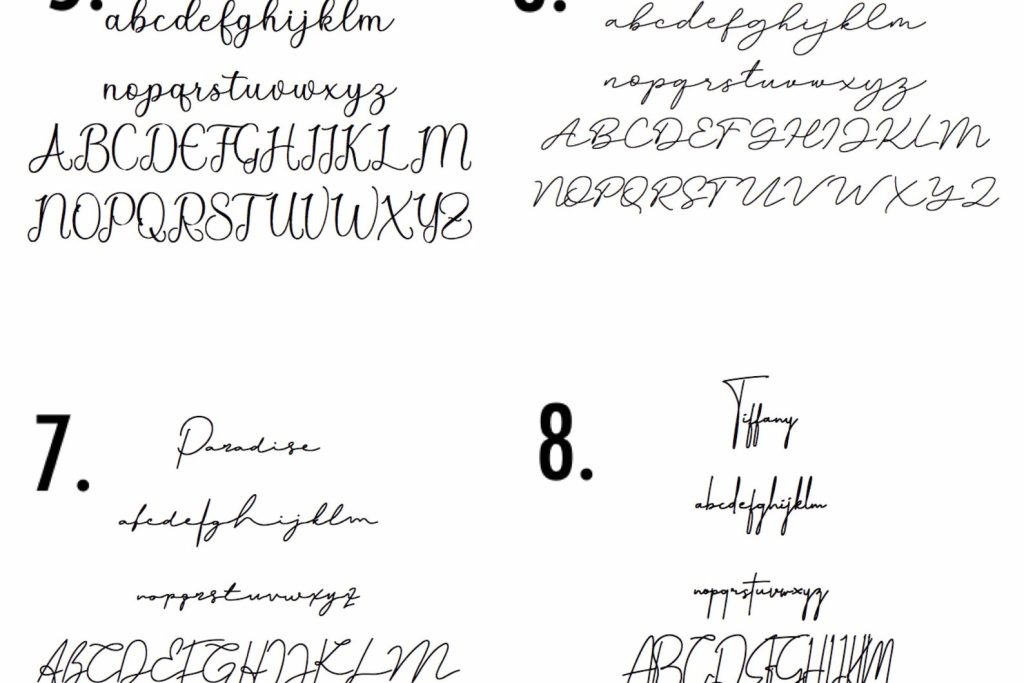 5.
abcdefghijklm
nopqrstuvwxyz
ABCDEFGHIJKLM
NOPQRSTUVWXYZ
abcdefghijklm
nopqrstuvwxyz
ABCDEFGHIJKLM
NOPQRSTUVWXYZ
7.
Paradise
abcdefghijklm
nopqrstuvwxyz
ABCDEFGHIJKLM
8.
Tiffany
abcdefghijklm
nopqrstuvwxyz
ABCDEFGHIJKLM